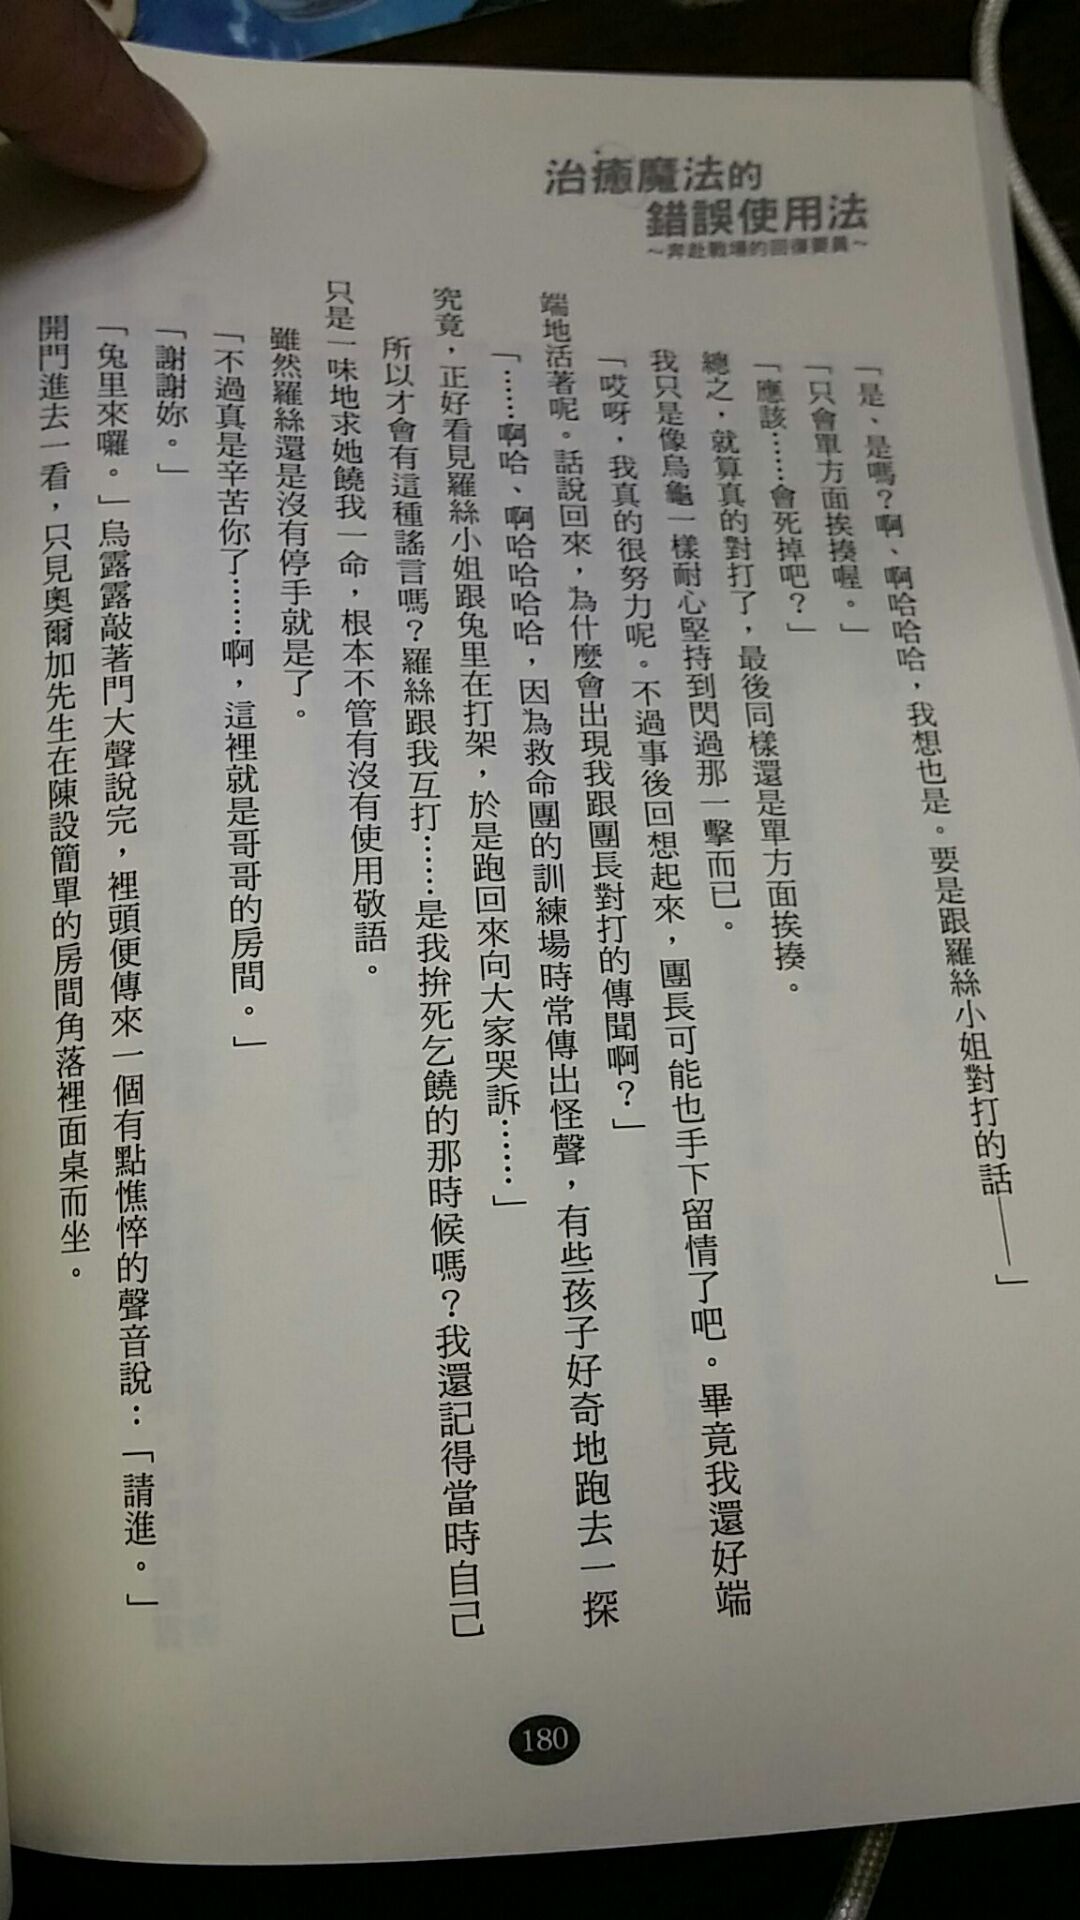 治癒魔法的
錯誤使用法
～奔赴戰場的回復要員～
「是、是嗎？啊、啊哈哈哈，我想也是。要是跟羅絲小姐對打的話——」
「只會單方面挨揍喔。」
「應該……會死掉吧？」
總之，就算真的對打了，最後同樣還是單方面挨揍。
我只是像烏龜一樣耐心堅持到閃過那一擊而已。
「哎呀，我真的很努力呢。不過事後回想起來，團長可能也手下留情了吧。畢竟我還好端
端地活著呢。話說回來，為什麼會出現我跟團長對打的傳聞啊？」
「……啊哈、啊哈哈哈哈，因為救命團的訓練場時常傳出怪聲，有些孩子好奇地跑去一探
究竟，正好看見羅絲小姐跟兔里在打架，於是跑回來向大家哭訴……」
所以才會有這種謠言嗎？羅絲跟我互打……是我拚死乞饒的那時候嗎？我還記得當時自己
只是一味地求她饒我一命，根本不管有沒有使用敬語。
雖然羅絲還是沒有停手就是了。
「不過真是辛苦你了……啊，這裡就是哥哥的房間。」
「謝謝妳。」
「兔里來囉。」烏露露敲著門大聲說完，裡頭便傳來一個有點憔悴的聲音說：「請進。」
開門進去一看，只見奧爾加先生在陳設簡單的房間角落裡面桌而坐。
180